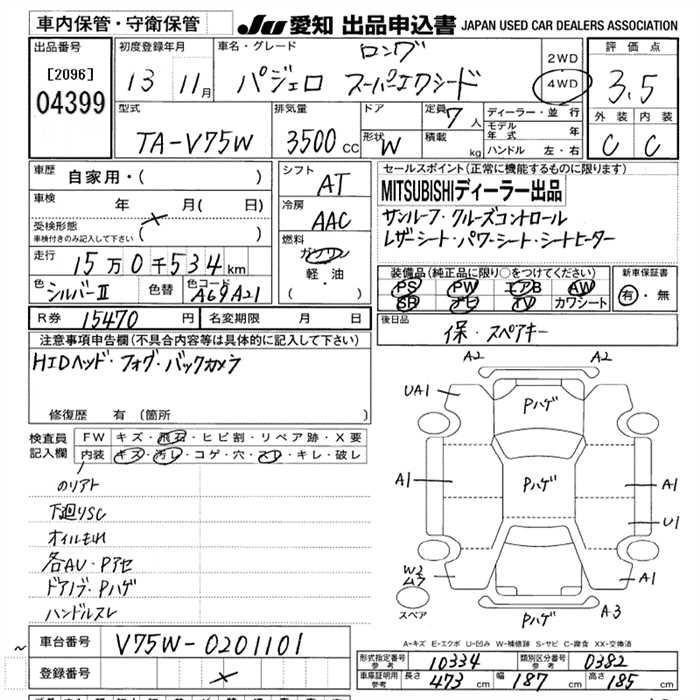 車内保管・守衛保管
JU 愛知 出品申込書 JAPAN USED CAR DEALERS ASSOCIATION
出品番号
[2096]
04399
初度登録年月
13 11月
車名・グレード
ロング
パジェロ スーパーエクシード
2WD
4WD
評価点
3.5
外装 内装
C C
型式
TA-V75W
排気量
3500 CC
ドア
形状 W
定員 7 人
積載 kg
ディーラー・並行
モデル年式 年
ハンドル 左・右
車歴 自家用・( )
車検 年 月( 日)
受検形態
車検付きのみ記入して下さい ( × )
走行 15万0千534km
色 シルバーII 色替 色コード A69 A21
シフト AT
冷房 AAC
燃料
ガソリン
軽・油
( )
セールスポイント(正常に機能するものに限ります)
MITSUBISHIディーラー出品
サンルーフ・クルーズコントロール
レザーシート・パワーシート・シートヒーター
装備品(純正品に限り○をつけてください)
PS PW エアB AW
SR ナビ TV カワシート
新車保証書
有・無
R券 15470 円 名変期限 月 日
後日品 保・スペアキー
注意事項申告欄(不具合内容等は具体的に記入して下さい)
HIDヘッド・フォグ・バックカメラ
修復歴 有 (箇所 )
検査員
記入欄
FW キズ・飛石・ヒビ割・リペア跡・X要
内装 キズ・汚レ・コゲ・穴・スレ・キレ・破レ
のリアト
下廻りSC
オイルもれ
各AU・Pアセ
ドアノブ・Pハゲ
ハンドルスレ
A2 A2
UA1 Pハゲ
A1 Pハゲ A1
U1
W2 A1
スペア Pハゲ A3
A-キズ E-エクボ U-凹み W-補修跡 S-サビ C-腐食 XX-交換済
車台番号 V75W-0201101
登録番号 ×
形式指定番号 参考 10334 類別区分番号 参考 0382
車庫証明用 参考 長さ 473 cm 幅 187 cm 高さ 185 cm